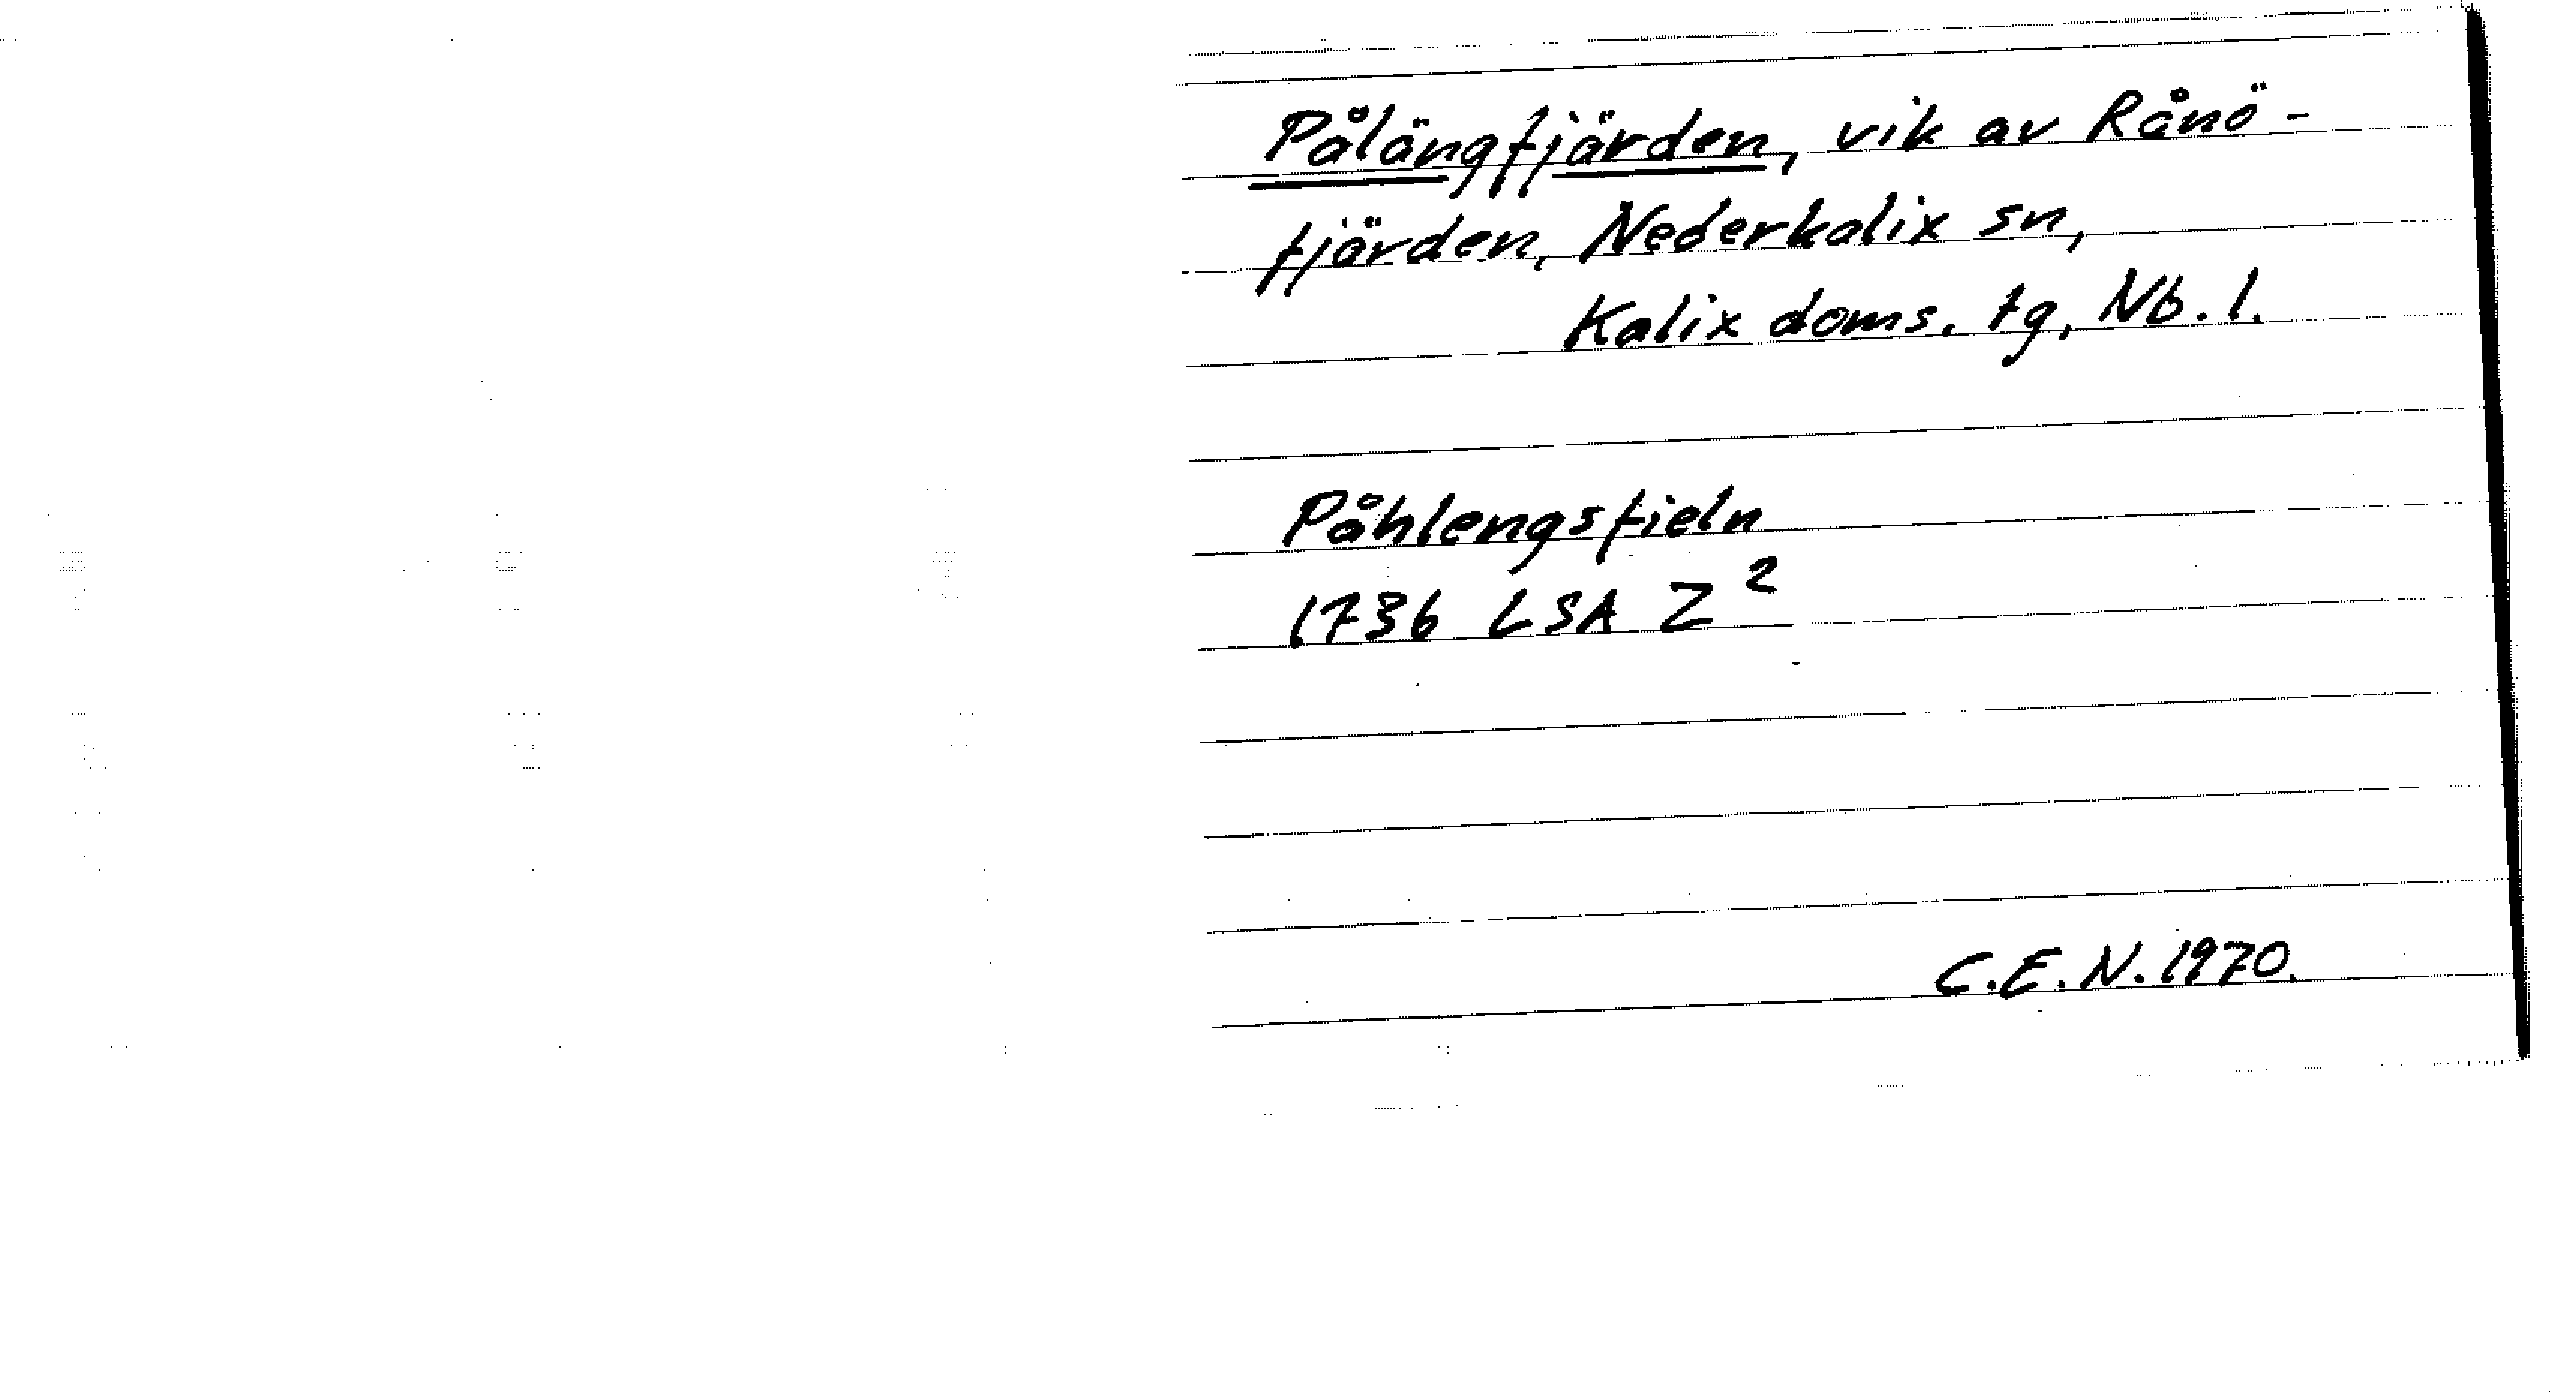 Pålängfjärden, vik av Rånö-
fjärden, Nederkalix sn,
Kalix doms. tg, Nb. l.
Påhlengsfieln
1736 LSA Z²
C.E.N. 1970.